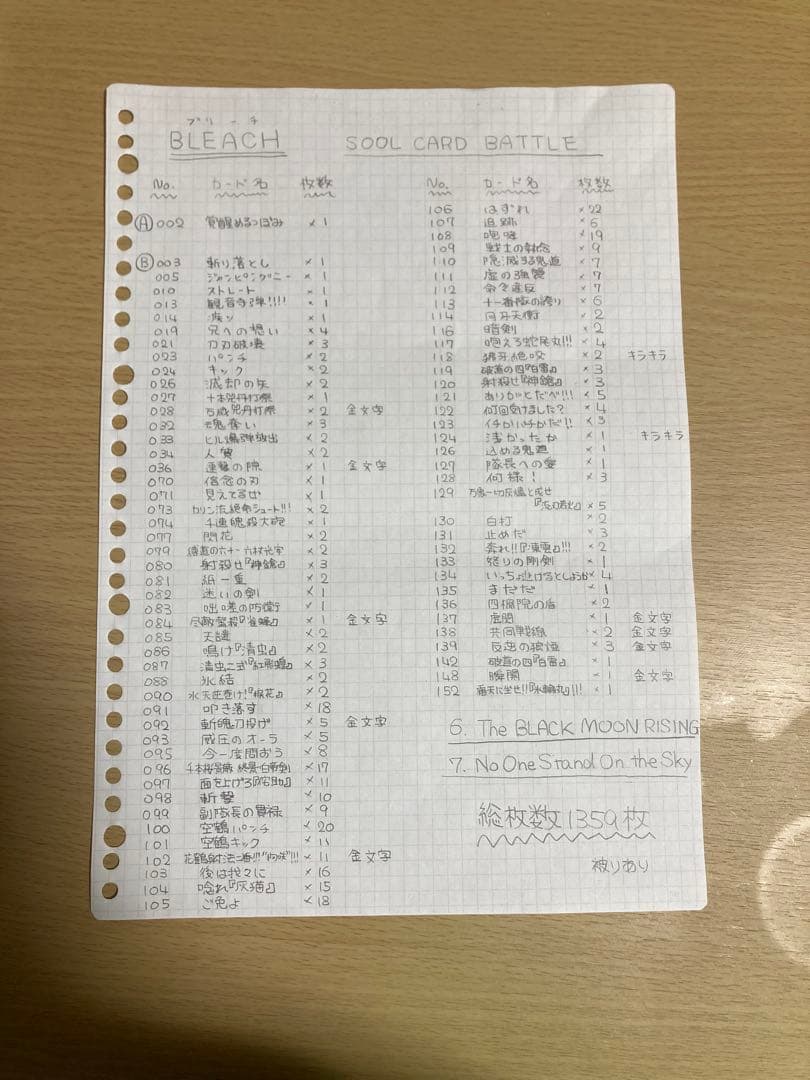 ブリーチ
BLEACH SOOL CARD BATTLE
No. カード名 枚数
Ⓐ002 覚醒めるつぼみ ×1
Ⓑ003 斬り落とし ×1
005 ジャンピングニー ×1
010 ストレート ×1
013 観音寺弾!!!! ×1
014 滅ッ ×1
019 兄への想い ×4
021 刀刃破壊 ×3
023 パンチ ×2
024 キック ×2
026 滅却の矢 ×2
027 十本発丹打祭 ×1
028 万歳発丹打祭 ×2 金文字
032 魂喰い ×3
033 ヒル爆弾放出 ×2
034 人質 ×2
036 連撃の隙 ×1 金文字
070 信念の刃 ×1
071 見えてるぜ ×1
073 カリン流絶命シュート!!! ×2
074 千連魄殺大砲 ×1
077 閃花 ×2
079 縛道の六十一 六杖光牢 ×2
080 射殺せ『神鎗』 ×3
081 紙一重 ×2
082 迷いの剣 ×1
083 咄嗟の防衛 ×1
084 尽敵螫殺『雀蜂』 ×1 金文字
085 天譴 ×2
086 鳴け『清虫』 ×2
087 清虫二式『紅飛蝗』 ×3
088 氷結 ×2
090 水天逆巻け!『捩花』 ×2
091 叩き落す ×18
092 斬魄刀投げ ×5 金文字
093 威圧のオーラ ×5
095 今一度問おう ×8
096 千本桜景厳 終景・白帝剣 ×17
097 面を上げろ『侘助』 ×11
098 斬撃 ×10
099 副隊長の貫禄 ×9
100 空鶴パンチ ×20
101 空鶴キック
102 花鶴射法二番!!!『拘咲』!!! ×11 金文字
103 後は我々に ×16
104 唸れ『灰猫』 ×15
105 ご免よ ×18
No. カード名 枚数
106 はずれ ×22
107 追跡 ×6
108 咆哮 ×19
109 戦士の執念 ×9
110 隠滅する鬼道 ×7
111 虚の強襲 ×7
112 命令違反 ×7
113 十一番隊の誇り ×6
114 月牙天衝 ×2
116 暗剣 ×2
117 咆えろ蛇尾丸!!! ×4
118 狼牙絶咬 ×2 キラキラ
119 破道の四『白雷』 ×3
120 射殺せ『神鎗』 ×3
121 ありがとだべ!!! ×5
122 何回受けました? ×4
123 イチかバチかだ!! ×3
124 浅かったか ×1 キラキラ
126 込める鬼道 ×1
127 隊長への愛 ×1
128 何様! ×3
129 万象一切灰燼と成せ
『流刃若火』 ×5
130 白打 ×2
131 止めだ ×3
132 奔れ!!『凍雲』!!! ×2
133 怒りの剛剣 ×1
134 いっちょ逃げるとしようか ×4
135 まだだ ×1
136 四楓院の盾 ×2
137 虚閃 ×1 金文字
138 共同戦線 ×2 金文字
139 反逆の狼煙 ×3 金文字
142 破道の四『白雷』 ×1
148 瞬閧 ×1 金文字
152 霜天に坐せ!!『氷輪丸』!!! ×1
6. The BLACK MOON RISING
7. No One Stand On the Sky
総枚数 1359枚
被りあり